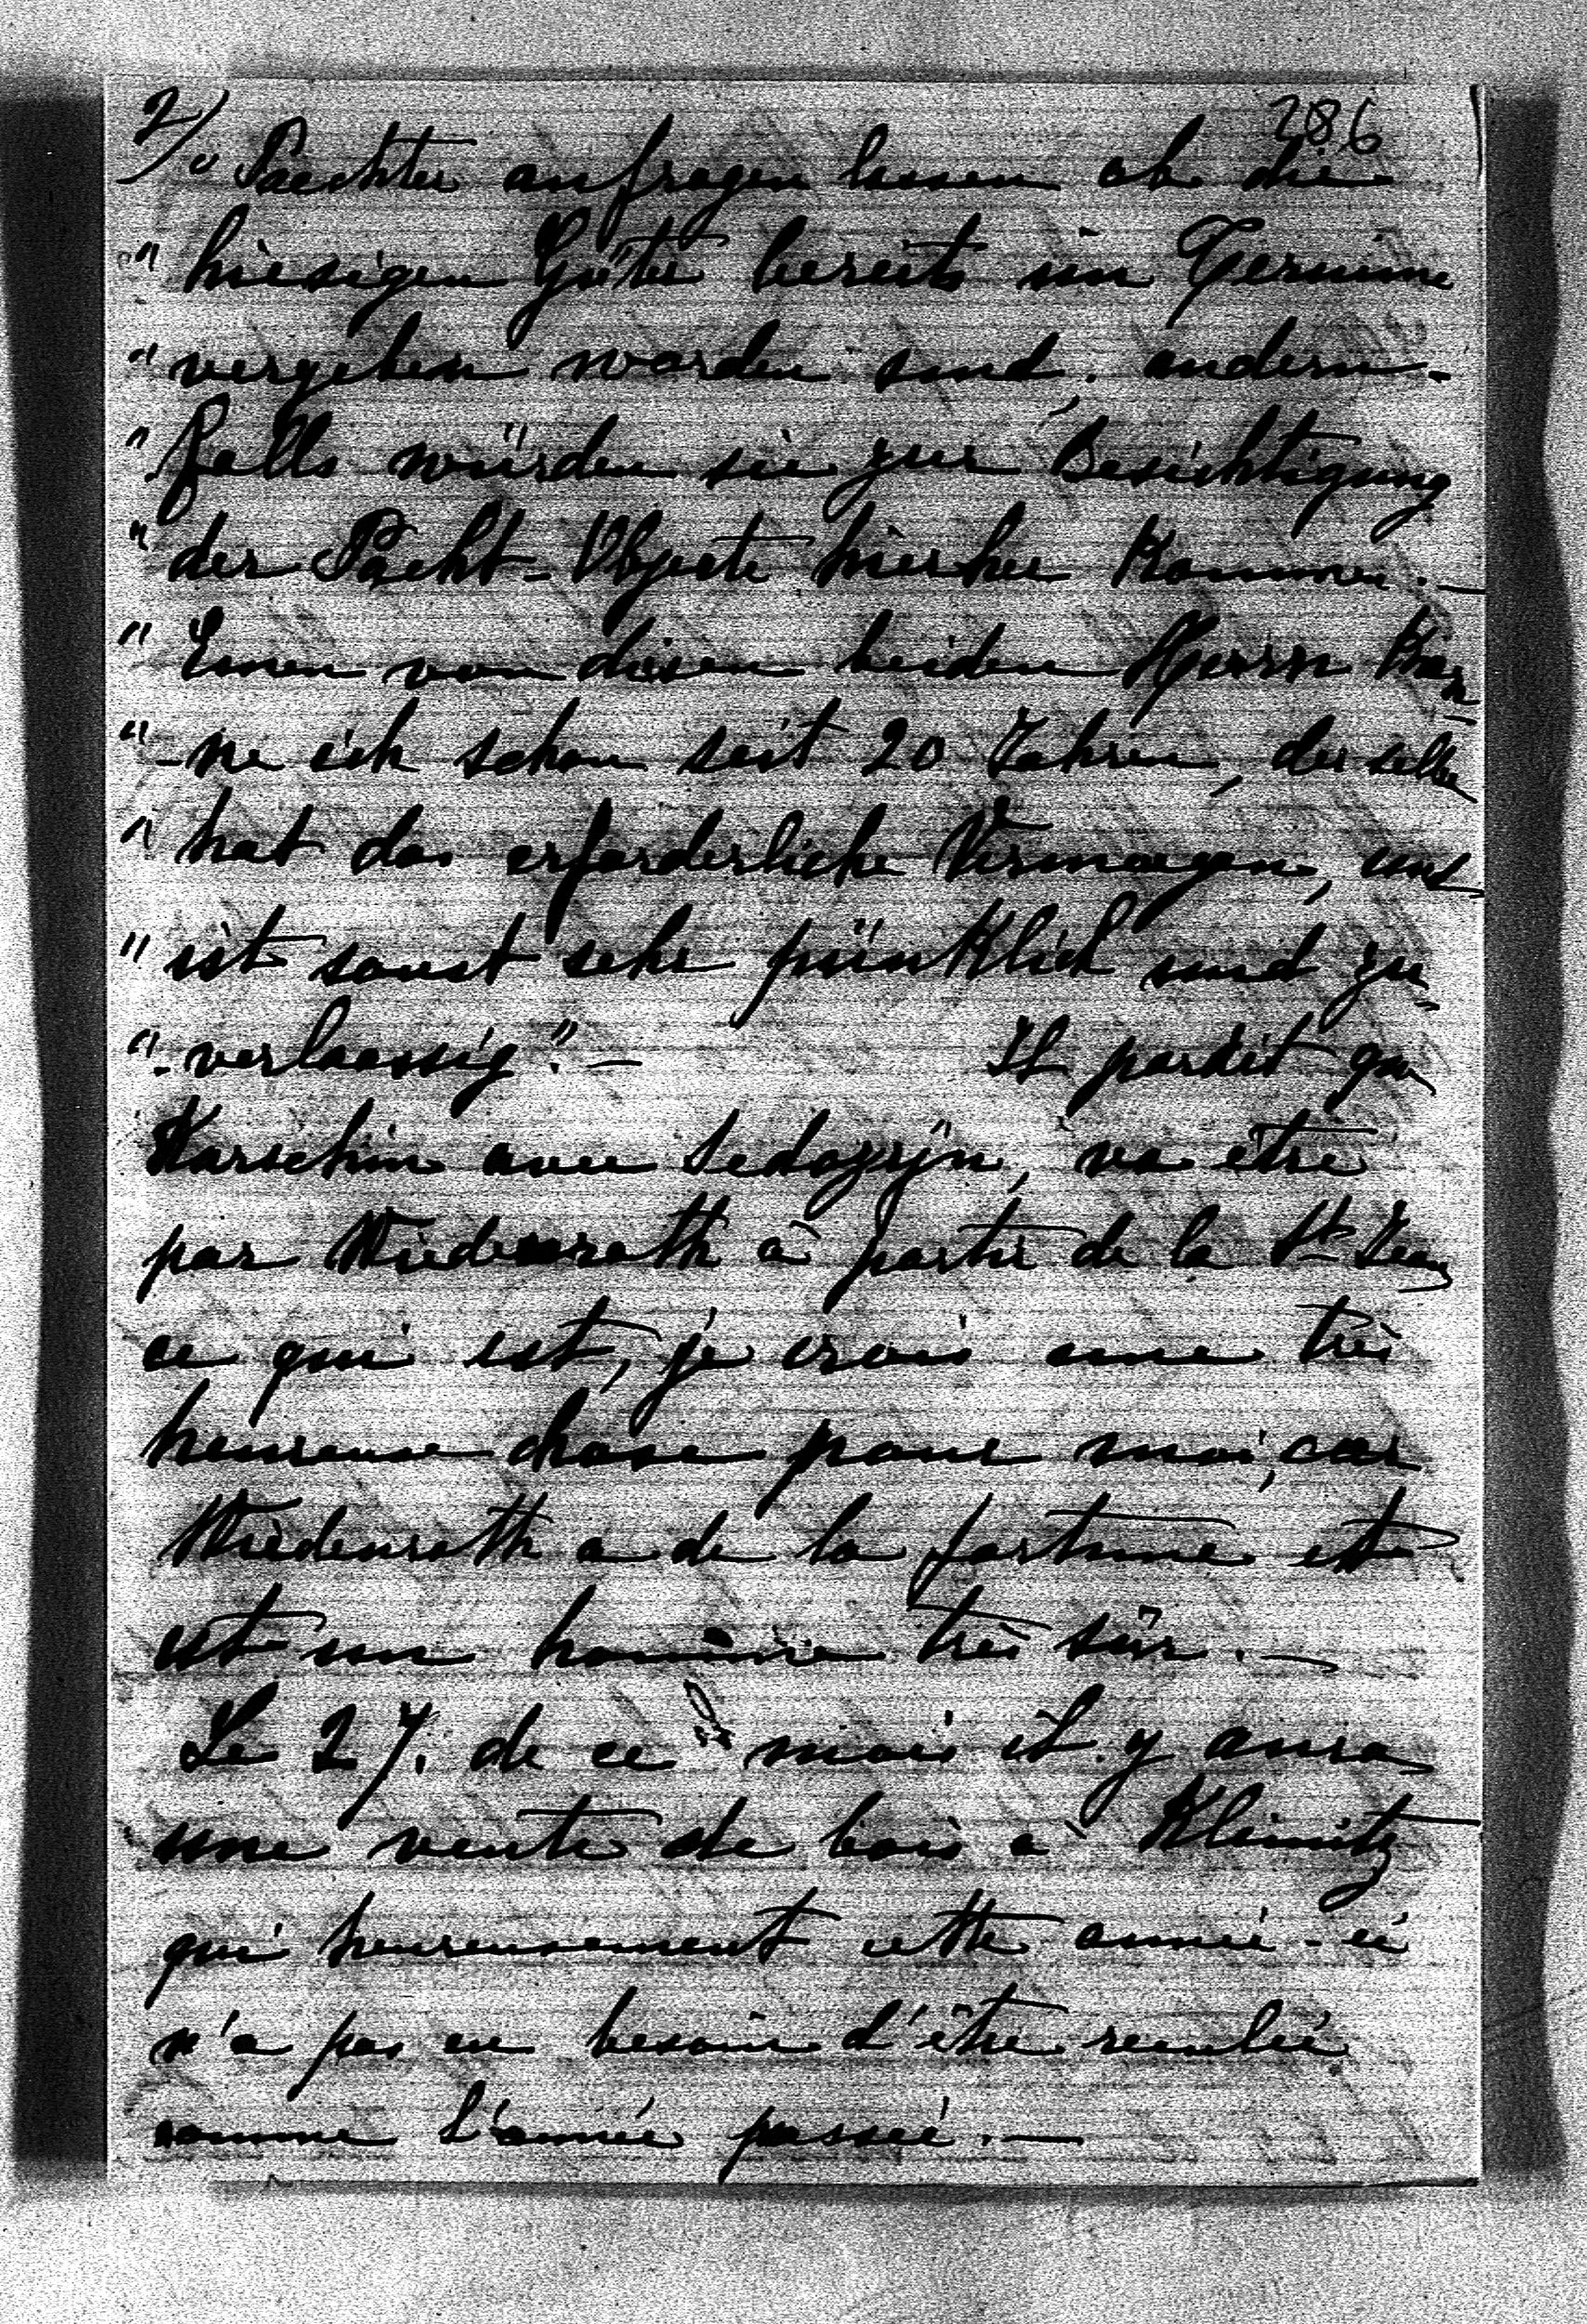 2/ 286
" Paechter anfragen lassen ob die
" hiesigen Güter bereits im Termine
" vergeben worden sind, andern-
" falls würden sie zur Besichtigung
" der Pacht-Objecte hierher Kommen. —
" Einen von diesen beiden Herrn Ken-
" -ne ich schon seit 20 Jahren, derselbe
" hat das erforderliche Vermoegen, und
" ist sonst sehr pünKtlich und zu-
" -verlaessig." — Il parait que
Karschin avec Sedozyn, va être
par Wiedenroth à partir de la St Jean
ce qui est, je crois une très
heureuse chose pour moi, car
Wiedenroth a de la fortune et
est un homme très sûr. —
Le 27. de ce mois il y aura
une vente de bois à Kleinitz
qui heureusement cette année-ci
n'a pas eu besoin d'être reculée
comme l'année passée. —